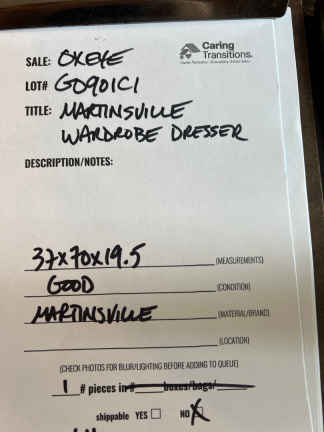 Caring
Transitions
SALE: OKEKE
LOT# GO901C1
TITLE: MARTINSVILLE
WARDROBE DRESSER
DESCRIPTION/NOTES:
37x70x19.5 (MEASUREMENTS)
GOOD (CONDITION)
MARTINSVILLE (MATERIAL/BRAND)
(LOCATION)
(CHECK PHOTOS FOR BLUR/LIGHTING BEFORE ADDING TO QUEUE)
1 # pieces in # boxes/bags/
shippable YES NO X